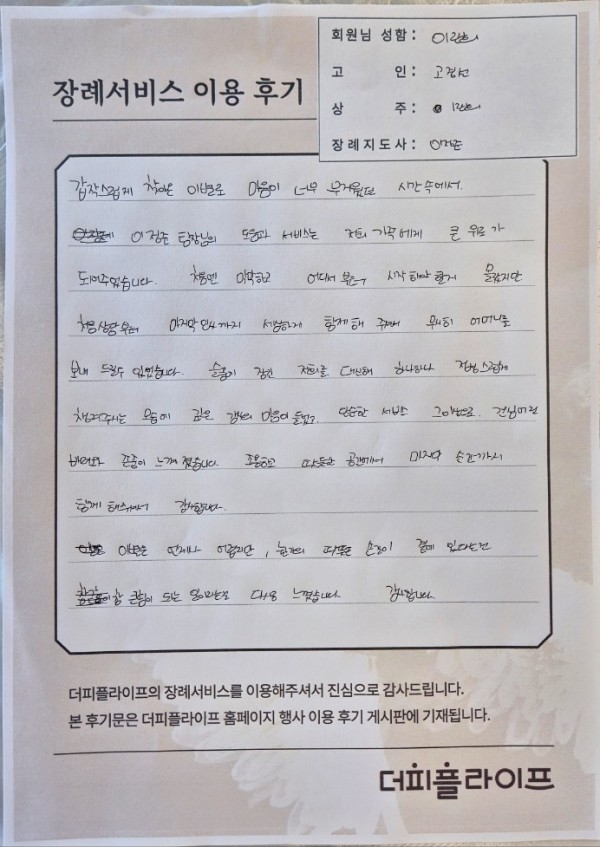 회원님 성함 :
고 인 :
상 주 :
장례지도사 :
장례서비스 이용 후기
갑작스럽게 찾아온 이별로 마음이 너무 무거웠던 시간 속에서.
이정준 팀장님의 도움과 서비스는 저희 가족에게 큰 위로가
되어주었습니다. 처음엔 막막하고 어디서 부터 시작 해야 할지 몰랐지만
처음 상담부터 마지막 인사까지 세심하게 함께 해 주셔서 무사히 어머니를
보내 드릴수 있었습니다. 슬픔에 잠긴 저희를 대신해 하나하나 정성스럽게
챙겨주시는 모습에 깊은 감사의 마음이 들었고. 단순한 서비스 그 이상으로. 진심어린
배려와 존중이 느껴 졌습니다. 조용하고 따뜻한 공간에서 마지막 순간까지
함께 해주셔서 감사합니다.
이별은 언제나 어렵지만, 누군가의 따뜻한 손길이 곁에 있다는건
참 큰힘이 되는 일이라는걸 다시금 느꼈습니다. 감사합니다.
더피플라이프의 장례서비스를 이용해주셔서 진심으로 감사드립니다.
본 후기문은 더피플라이프 홈페이지 행사 이용 후기 게시판에 기재됩니다.
더피플라이프